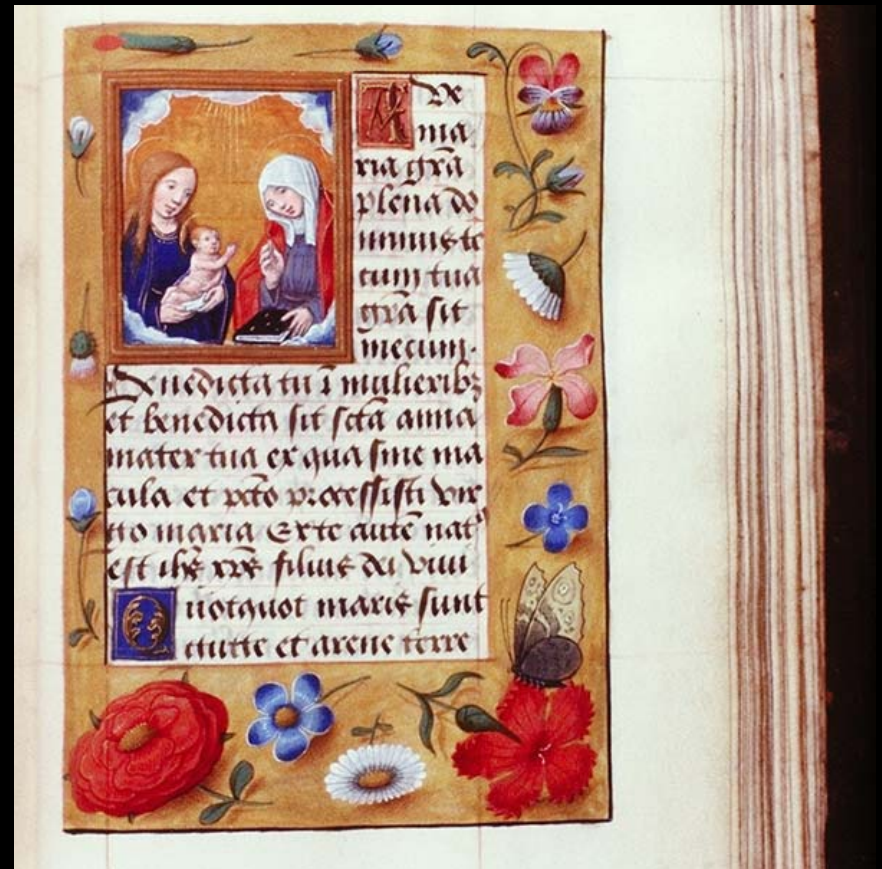 Ave
ma
ria grā
plena do
minus te
cum tua
grā sit
mecum.
Benedicta tu ī mulieribꝫ
et benedicta sit sctā anna
mater tua ex qua sine ma
cula et pctō processisti vir
go maria Ex te autē natꝰ
est ihs̄ xp̄s filius dei viui
Quotquot maris sunt
gutte et arene terre